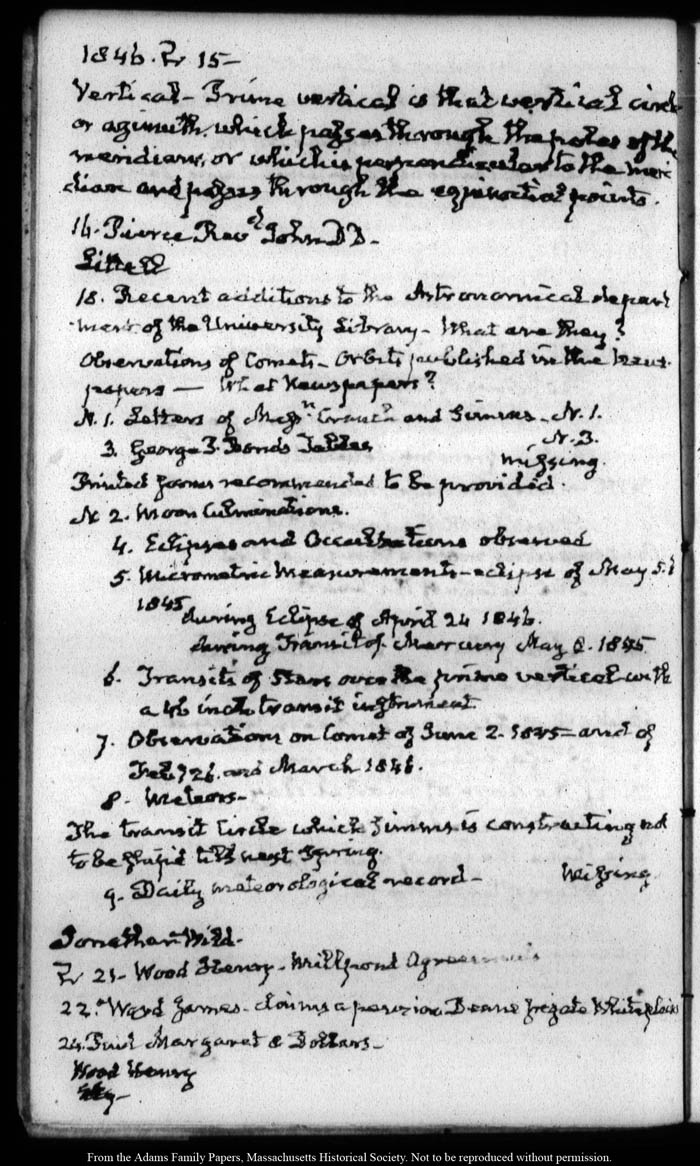 1846. IV 15-
Vertical - Prime vertical is that vertical circle
or azimuth, which passes through the poles of the
meridian, or which is perpendicular to the meri
dian and passes through the equinoctial points.
16. Pierce Revd John D D -
Littell
18. Recent additions to the Astronomical depart
ment of the University Library - What are they?
Observations of Comets - Orbits published in the news
papers — What Newspapers?
N. 1. Letters of Messrs and Simms - N. 1.
3. George P. Bonds Tables N. 3.
missing.
Printed forms recommended to be provided.
N 2. Moon Culminations.
4. Eclipses and Occultations observed
5. Micrometric Measurements - eclipse of May
1845
during Eclipse of April 24 1846.
during Transit of Mercury May 8. 1845
6. Transits of Stars over the prime vertical with
a 46 inch transit instrument
7. Observations on Comet of June 2. 1845 - and of
Feby 26. and March 1846.
8. Meteors -
The transit circle which Simms is constructing not
to be shipped till next Spring.
9. Daily meteorological record - Missing
Jonathan Wild.
21 - Wood Henry - Millpond Agreement
22. Ward James - claims a pension Deane frigate White plains
24. Margaret 2 Dollars -
Wood Henry